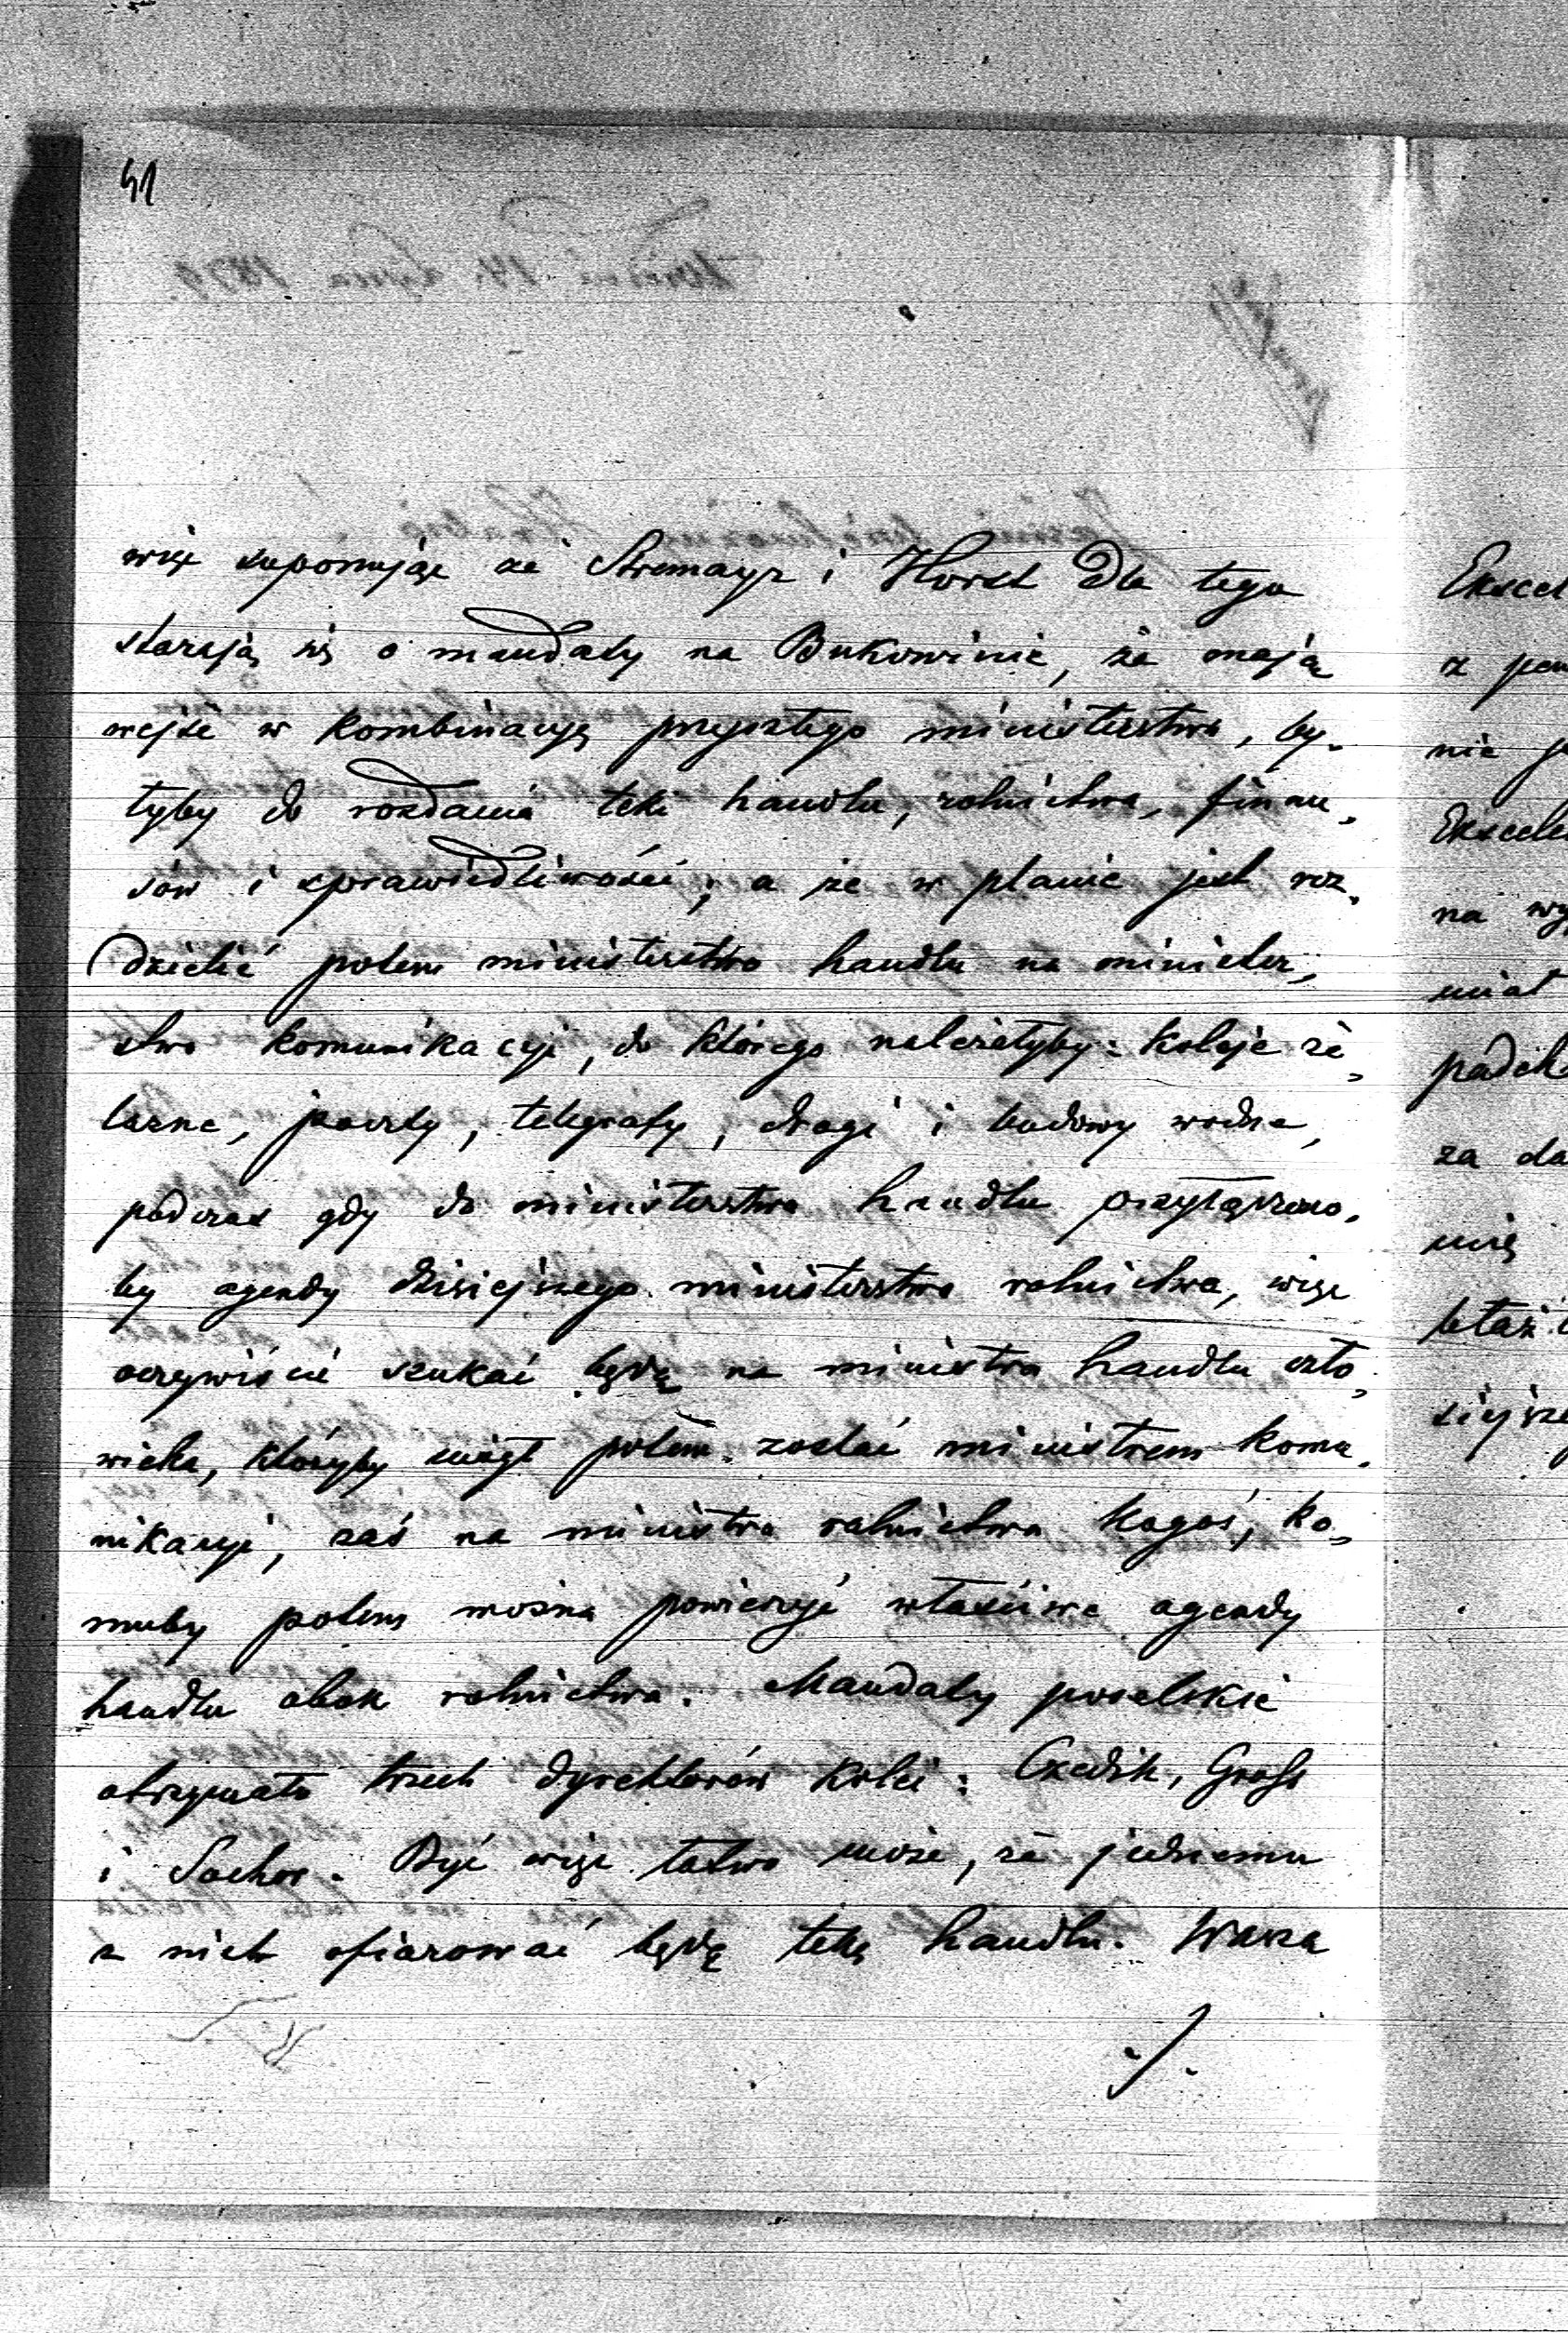 41
więc suponując że Stremayr i Horst dla tego
starają się o mandaty na Bukowinie, że mają
wejść w kombinacyą przyszłego ministerstwa, by-
łyby do rozdania teki handlu, rolnictwa, finan-
sów i sprawiedliwości; a że w planie jest roz-
dzielić potem ministerstwo handlu na minister-
stwo komunikacyi, do którego należałyby: koleje że-
lazne, poczty, telegrafy, drogi i budowy wodne,
podczas gdy do ministerstwa handlu przyłączono-
by agendy dzisiejszego ministerstwa rolnictwa, więc
oczywiście szukać będą na ministra handlu czło-
wieka, któryby mógł potem zostać ministrem komu-
nikacyi, zaś na ministra rolnictwa kogoś, ko-
muby potem można powierzyć właściwe agendy
handlu obok rolnictwa. Mandaty poselskie
otrzymało trzech dyrektorów kolei: Czedik, Gross
i Sochor. Być więc łatwo może, że jednemu
z nich ofiarować będą tekę handlu. Wasza
./.